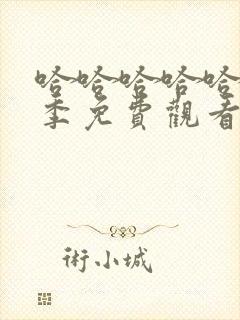 哈哈哈哈哈
季免費觀看
術小城